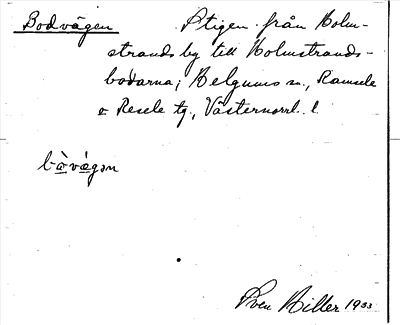 Bodvägen Stigen från Holm-
strands by till Holmstrands-
bodarna; Helgums sn., Ramsele
o. Resele tg., Västernorrl. l.
bòvégən
Sven Hiller 1933